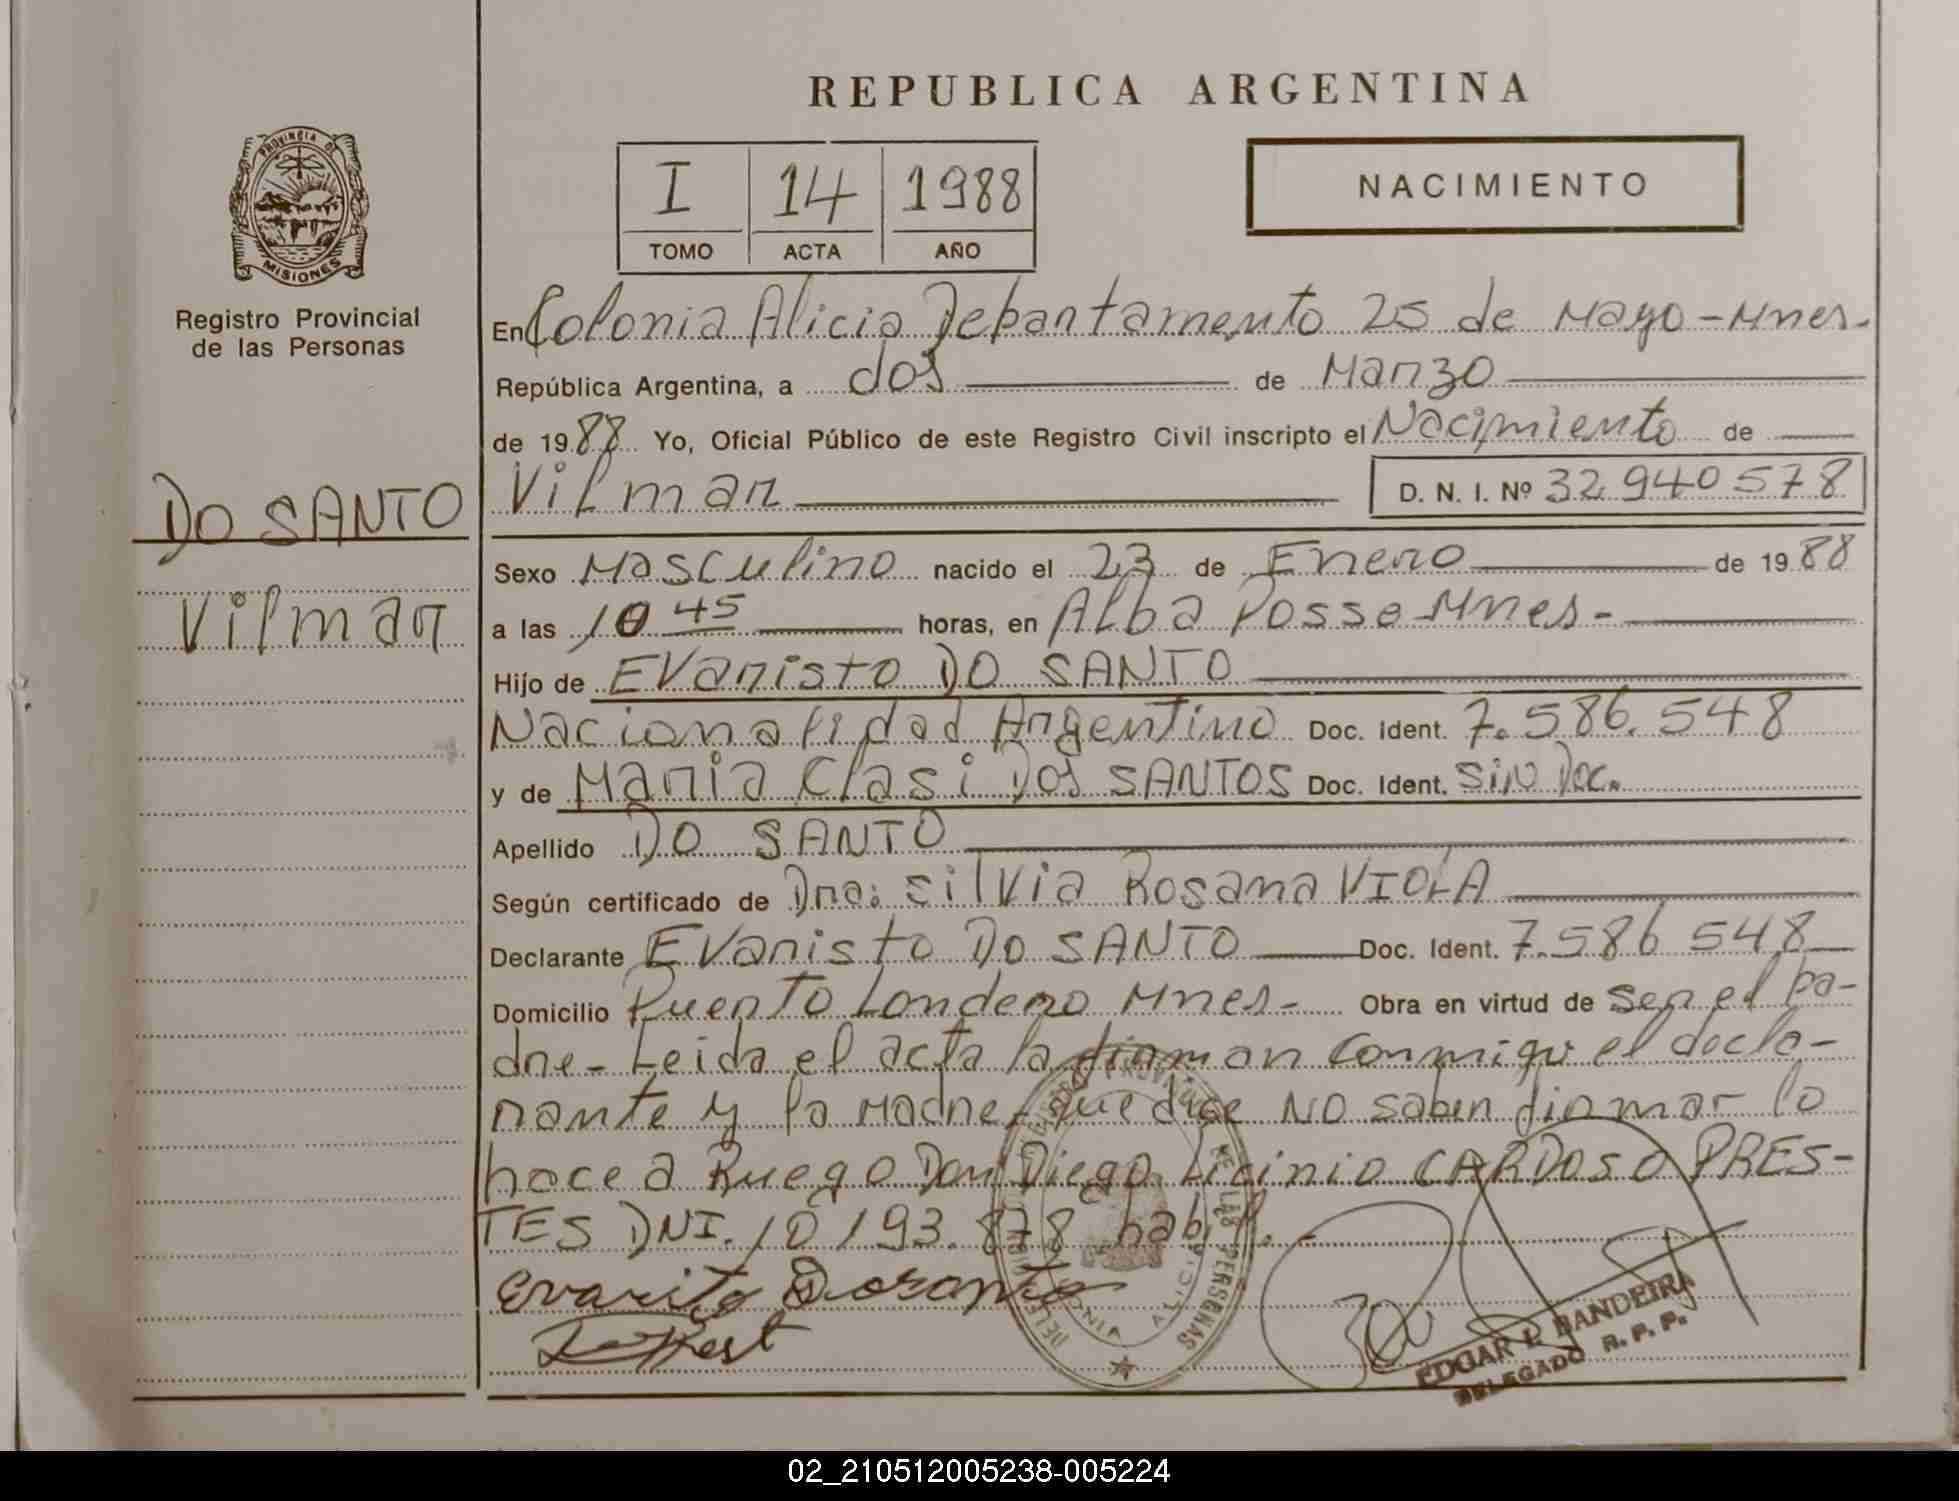 REPUBLICA ARGENTINA
PROVINCIA DE
MISIONES
Registro Provincial
de las Personas
I 14 1988
TOMO ACTA AÑO
NACIMIENTO
En Colonia Alicia Depantamento 25 de Mayo-Mnes-
República Argentina, a dos de Marzo
de 1988 Yo, Oficial Público de este Registro Civil inscripto el Nacimiento de
Vilmar D. N. I. Nº 32.940578
DO SANTO
Vilmar
Sexo Masculino nacido el 23 de Enero de 1988
a las 10 45 horas, en Alba Posse Mnes-
Hijo de Evaristo DO SANTO
Nacionalidad Argentino Doc. Ident. 7.586.548
y de Maria Clasi Dos SANTOS Doc. Ident. Sin Doc.
Apellido DO SANTO
Según certificado de Dra: Silvia Rosana VIOLA
Declarante Evaristo DO SANTO Doc. Ident. 7.586 548
Domicilio Puerto Londero Mnes- Obra en virtud de Ser el pa-
dre- Leida el acta la firman conmigo el decla-
rante y la Madre que dice NO saber firmar lo
hace a Ruego Don Diego Licinio CARDOSO PRES-
TES DNI. 10 193.878 habil.
Evarito Dosanto
EDGAR L. BANDEIRA
DELEGADO R. P. P.
02_210512005238-005224